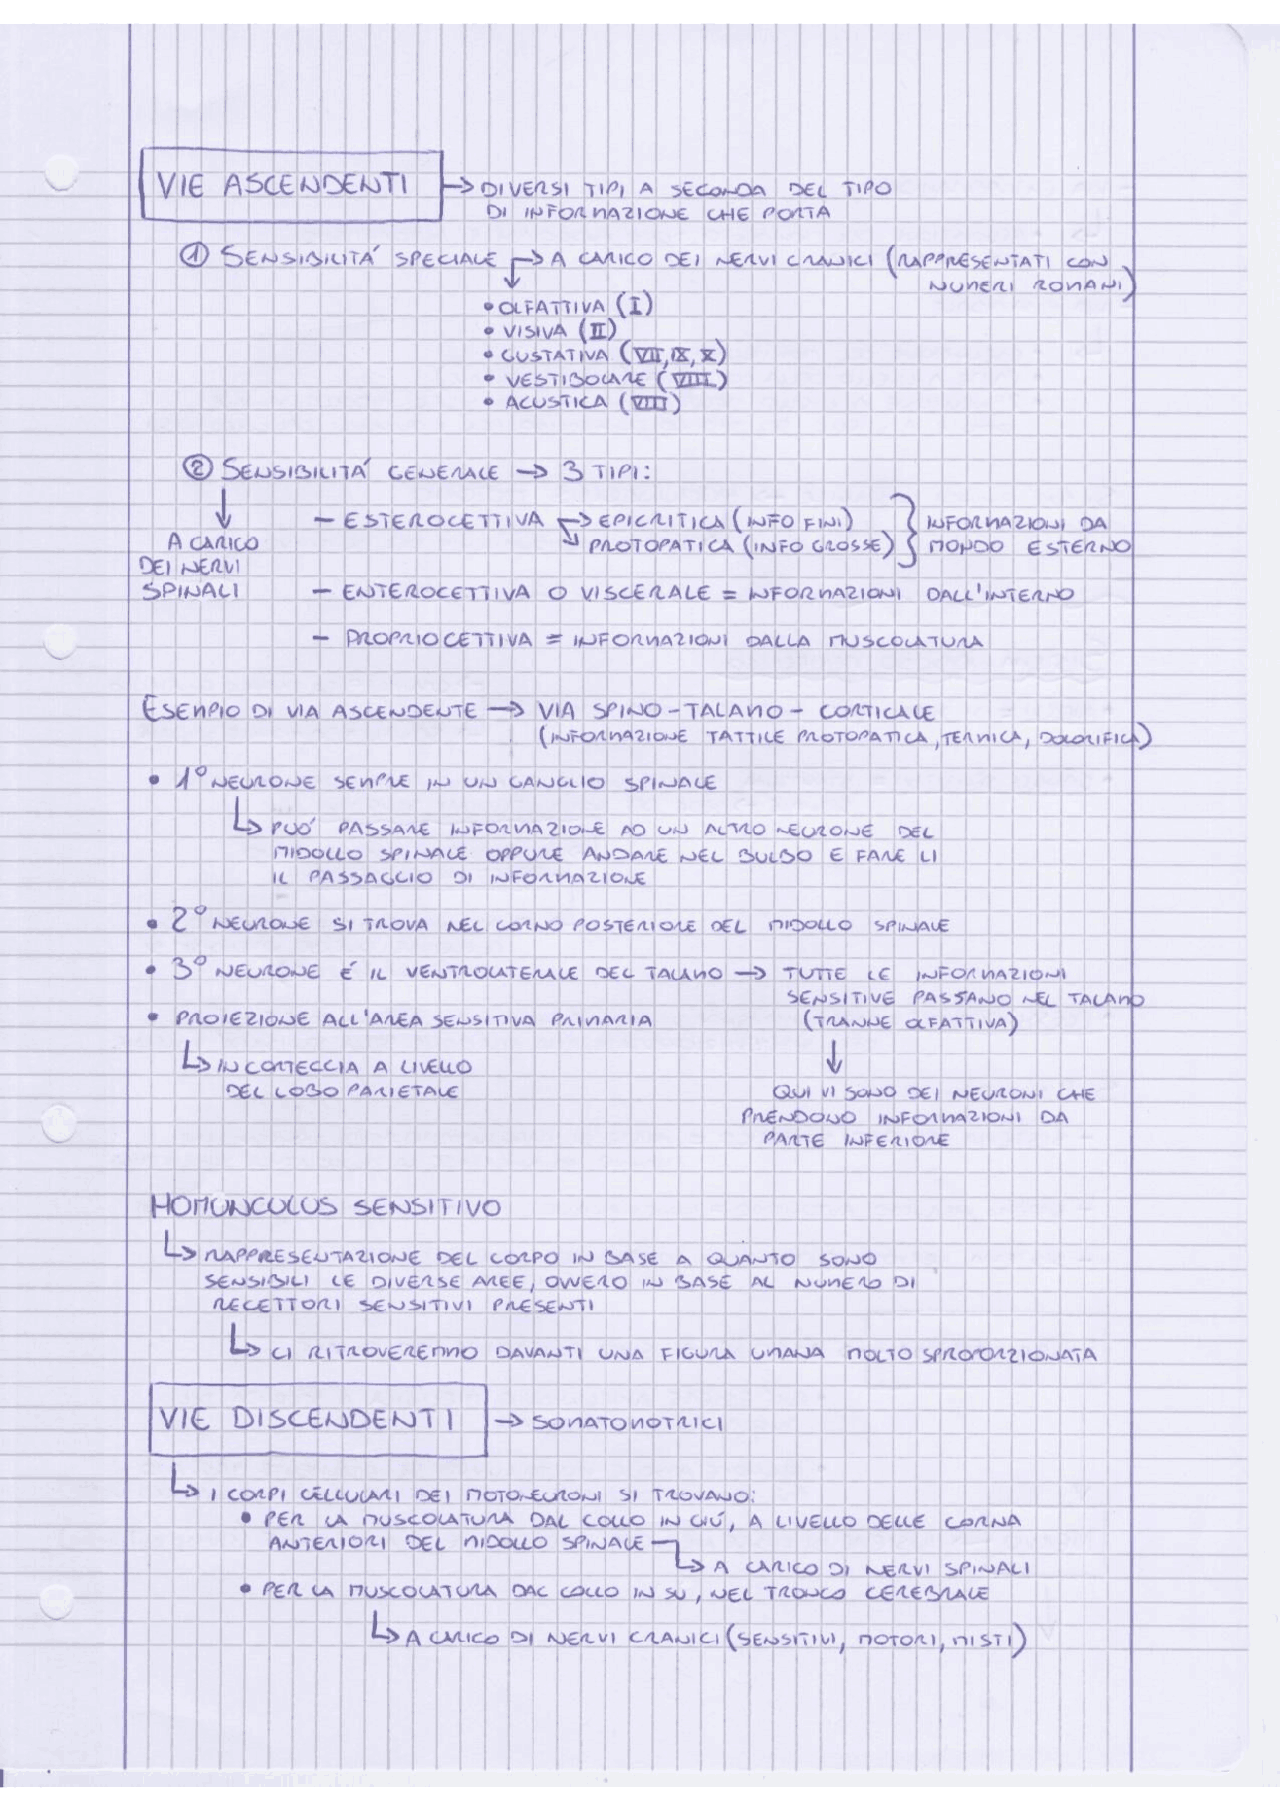 VIE ASCENDENTI → DIVERSI TIPI A SECONDA DEL TIPO
DI INFORMAZIONE CHE PORTA
① SENSIBILITÁ SPECIALE → A CARICO DEI NERVI CRANICI (RAPPRESENTATI CON
NUMERI ROMANI)
• OLFATTIVA (I)
• VISIVA (II)
• GUSTATIVA (VII, IX, X)
• VESTIBOLARE (VIII)
• ACUSTICA (VIII)
② SENSIBILITÁ GENERALE → 3 TIPI:
↓
A CARICO
DEI NERVI
SPINALI
- ESTEROCETTIVA → EPICRITICA (INFO FINI)
→ PROTOPATICA (INFO GROSSE)
} INFORMAZIONI DA
MONDO ESTERNO
- ENTEROCETTIVA O VISCERALE = INFORMAZIONI DALL'INTERNO
- PROPRIOCETTIVA = INFORMAZIONI DALLA MUSCOLATURA
ESEMPIO DI VIA ASCENDENTE → VIA SPINO-TALAMO-CORTICALE
(INFORMAZIONE TATTILE PROTOPATICA, TERMICA, DOLORIFICA)
• 1° NEURONE SEMPRE IN UN GANGLIO SPINALE
↳ PUO' PASSARE INFORMAZIONE AD UN ALTRO NEURONE DEL
MIDOLLO SPINALE OPPURE ANDARE NEL BULBO E FARE LI
IL PASSAGGIO DI INFORMAZIONE
• 2° NEURONE SI TROVA NEL CORNO POSTERIORE DEL MIDOLLO SPINALE
• 3° NEURONE É IL VENTROLATERALE DEL TALAMO → TUTTE LE INFORMAZIONI
SENSITIVE PASSANO NEL TALAMO
(TRANNE OLFATTIVA)
↓
QUI VI SONO DEI NEURONI CHE
PRENDONO INFORMAZIONI DA
PARTE INFERIORE
• PROIEZIONE ALL'AREA SENSITIVA PRIMARIA
↳ IN CORTECCIA A LIVELLO
DEL LOBO PARIETALE
HOMUNCULUS SENSITIVO
↳ RAPPRESENTAZIONE DEL CORPO IN BASE A QUANTO SONO
SENSIBILI LE DIVERSE AREE, OVVERO IN BASE AL NUMERO DI
RECETTORI SENSITIVI PRESENTI
↳ CI RITROVEREMMO DAVANTI UNA FIGURA UMANA MOLTO SPROPORZIONATA
VIE DISCENDENTI → SOMATOMOTRICI
↳ I CORPI CELLULARI DEI MOTONEURONI SI TROVANO:
• PER LA MUSCOLATURA DAL COLLO IN GIÚ, A LIVELLO DELLE CORNA
ANTERIORI DEL MIDOLLO SPINALE
↳ A CARICO DI NERVI SPINALI
• PER LA MUSCOLATURA DAL COLLO IN SU, NEL TRONCO CEREBRALE
↳ A CARICO DI NERVI CRANICI (SENSITIVI, MOTORI, MISTI)